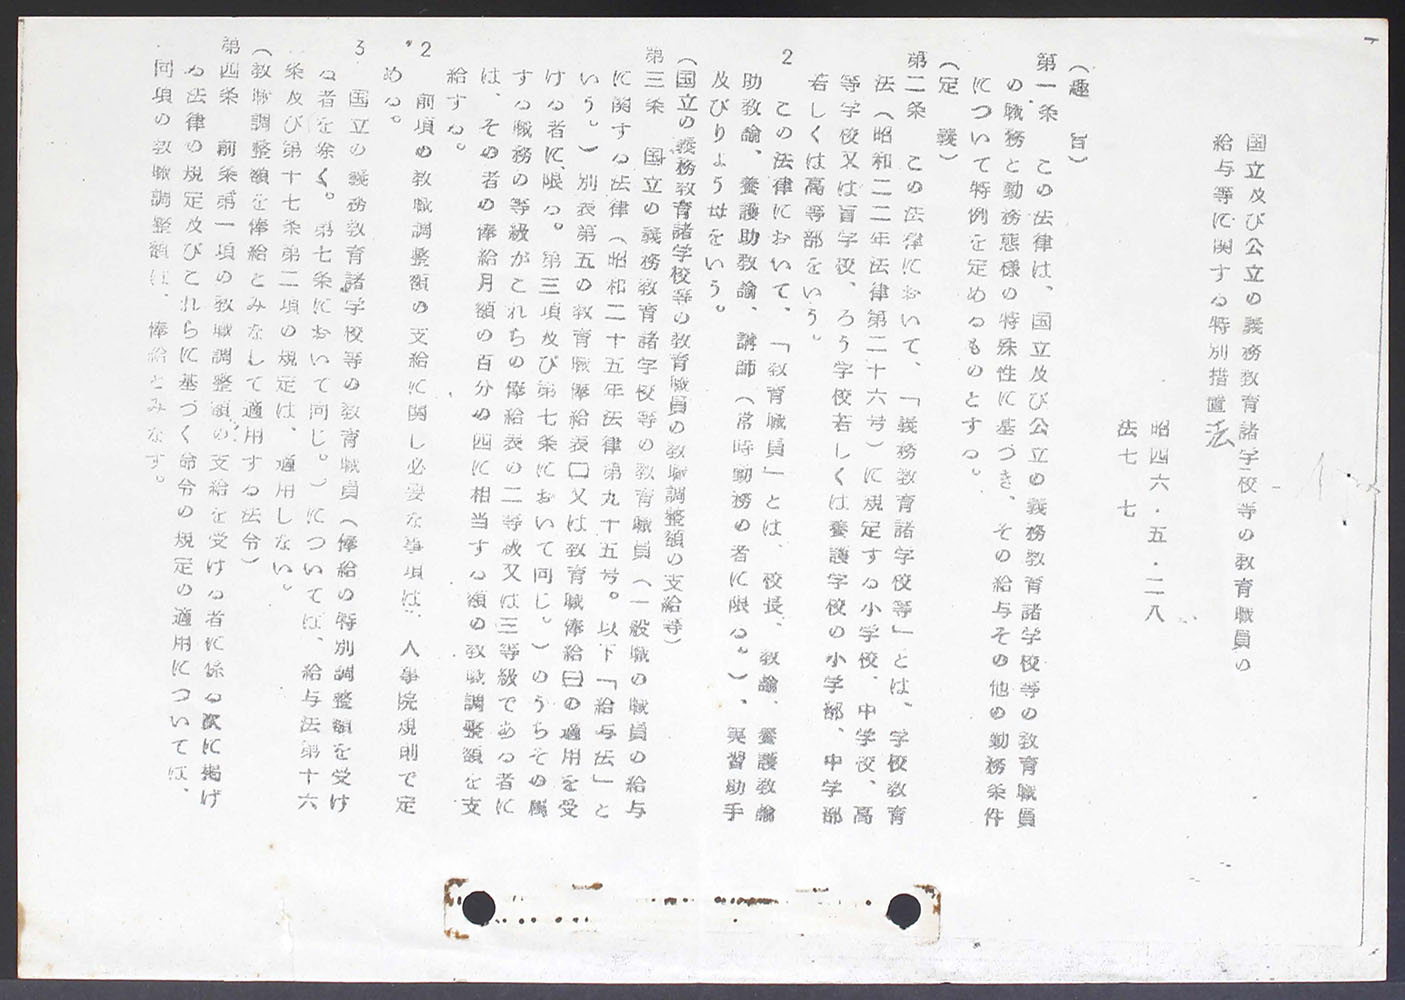 国立及び公立の義務教育諸学校等の教育職員の
給与等に関する特別措置法
昭四六・五・二八
法七七
（趣　旨）
第一条　この法律は、国立及び公立の義務教育諸学校等の教育職員
の職務と勤務態様の特殊性に基づき、その給与その他の勤務条件
について特例を定めるものとする。
（定　義）
第二条　この法律において、「義務教育諸学校等」とは、学校教育
法（昭和二二年法律第二十六号）に規定する小学校、中学校、高
等学校又は盲学校、ろう学校若しくは養護学校の小学部、中学部
若しくは高等部をいう。
2　この法律において、「教育職員」とは、校長、教諭、養護教諭
助教諭、養護助教諭、講師（常時勤務の者に限る。）、実習助手
及びりょう母をいう。
（国立の義務教育諸学校等の教育職員の教職調整額の支給等）
第三条　国立の義務教育諸学校等の教育職員（一般職の職員の給与
に関する法律（昭和二十五年法律第九十五号。以下「給与法」と
いう。）別表第五の教育職俸給表㈡又は教育職俸給㈢の適用を受
ける者に、限る。第三項及び第七条において同じ。）のうちその属
する職務の等級がこれらの俸給表の二等級又は三等級である者に
は、その者の俸給月額の百分の四に相当する額の教職調整額を支
給する。
2　前項の教職調整額の支給に関し必要な事項は、人事院規則で定
める。
3　国立の義務教育諸学校等の教育職員（俸給の特別調整額を受け
る者を除く。第七条において同じ。）については、給与法第十六
条及び第十七条第二項の規定は、適用しない。
（教職調整額を俸給とみなして適用する法令）
第四条　前条第一項の教職調整額の支給を受ける者に係る次に掲げ
る法律の規定及びこれらに基づく命令の規定の適用については、
同項の教職調整額は、俸給とみなす。